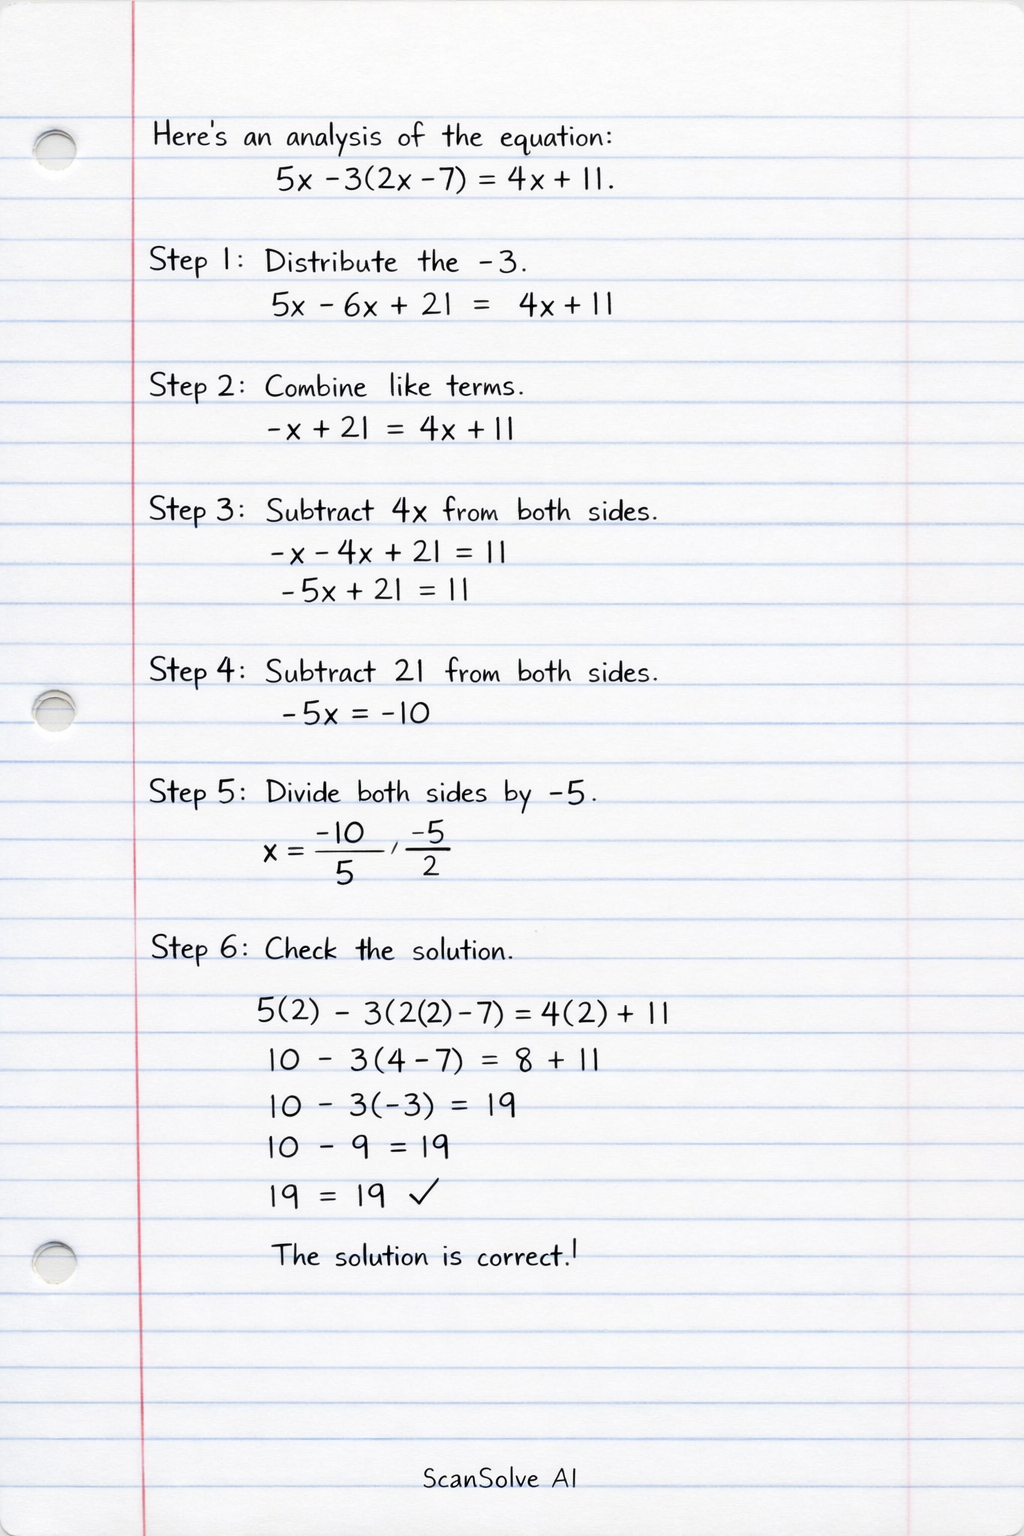 Here's an analysis of the equation:
5x - 3(2x - 7) = 4x + 11.
Step 1: Distribute the -3.
5x - 6x + 21 = 4x + 11
Step 2: Combine like terms.
-x + 21 = 4x + 11
Step 3: Subtract 4x from both sides.
-x - 4x + 21 = 11
-5x + 21 = 11
Step 4: Subtract 21 from both sides.
-5x = -10
Step 5: Divide both sides by -5.
x = -10/5 , -5/2
Step 6: Check the solution.
5(2) - 3(2(2) - 7) = 4(2) + 11
10 - 3(4 - 7) = 8 + 11
10 - 3(-3) = 19
10 - 9 = 19
19 = 19 ✓
The solution is correct.!
ScanSolve AI